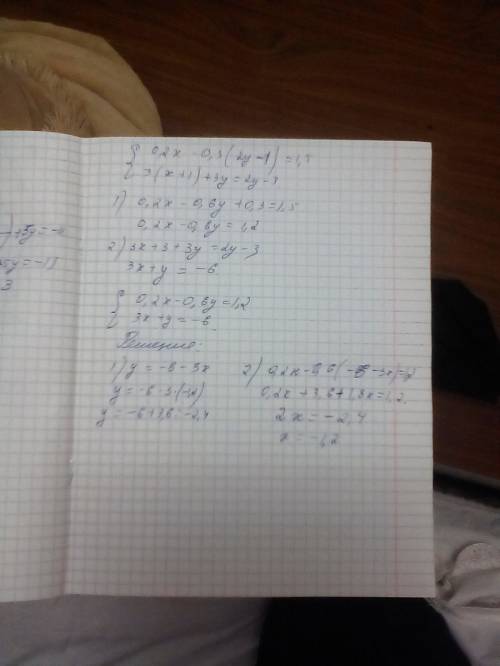 +5y = -11
5y = -11
3
{ 0,2x - 0,3(2y-1) = 1,5
3(x+1)+3y = 2y-3
1) 0,2x - 0,6y + 0,3 = 1,5
0,2x - 0,6y = 1,2
2) 3x+3+3y = 2y-3
3x+y = -6
{ 0,2x - 0,6y = 1,2
3x+y = -6
Решение:
1) y = -6 - 3x
y = -6 - 3·(-1,2)
y = -6+3,6 = -2,4
2) 0,2x - 0,6(-6-3x) = 1,2
0,2x + 3,6 + 1,8x = 1,2
2x = -2,4
x = -1,2